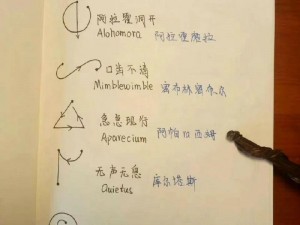 阿拉霍洞开
Alohomora 阿拉霍魔拉
口齿不清
Mimblewimble
急急现行
Aparecium 阿帕拉西姆
无声无息
Quietus 库尔塔斯